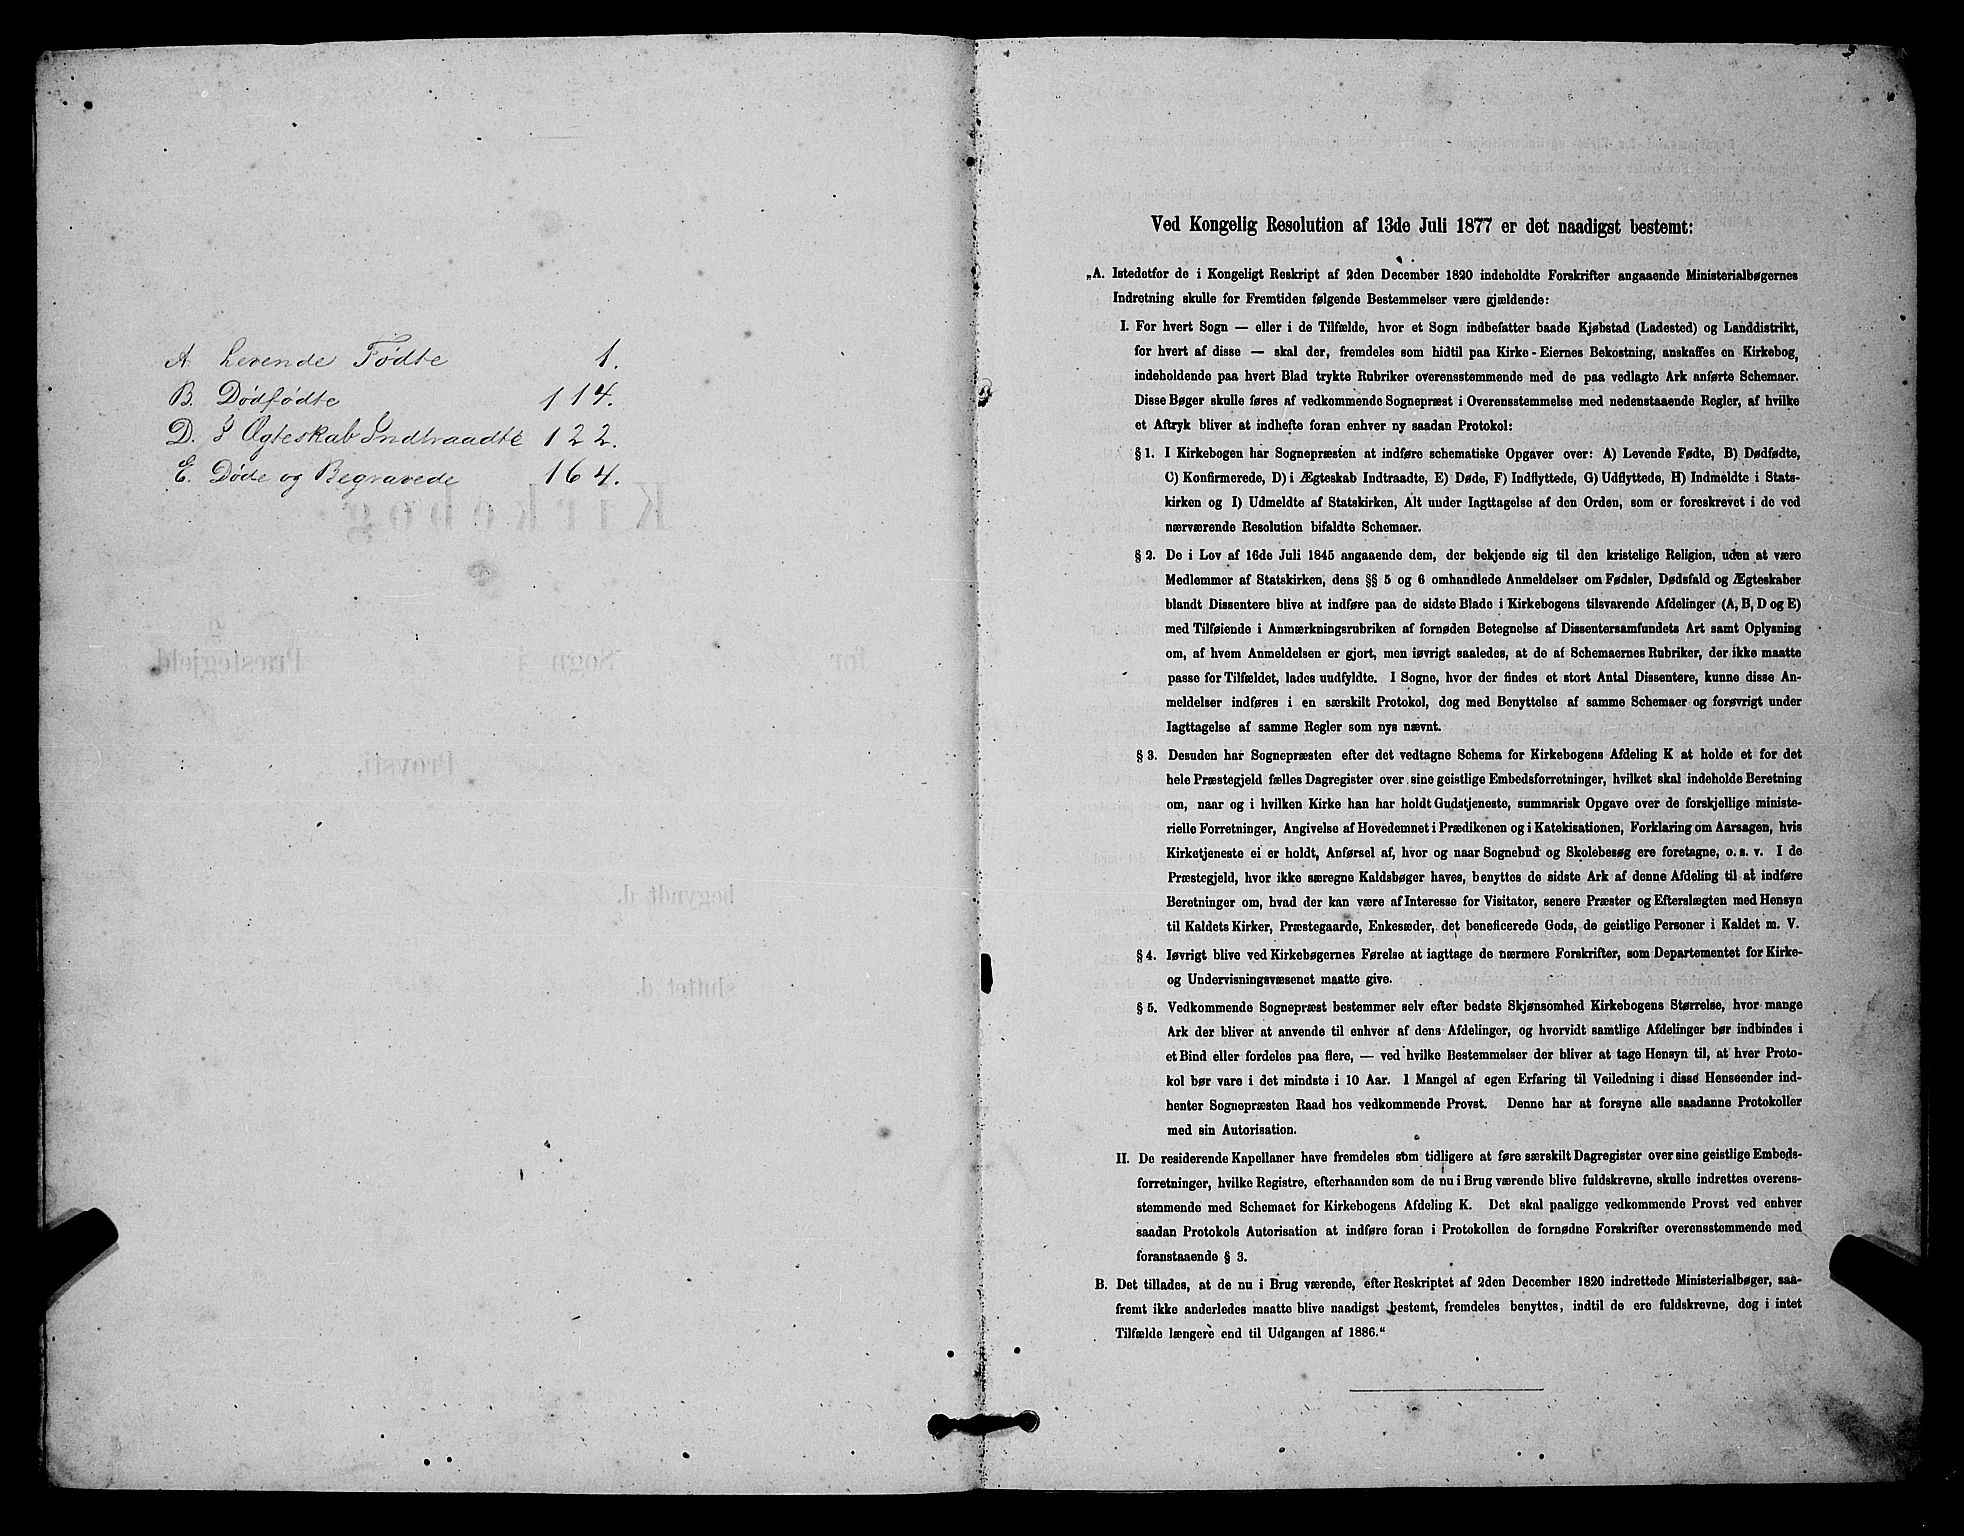 A Levende Fødte 1.
B. Dødfødte 114.
D. I Ægteskab Indtraadte 122.
E. Døde og Begravede 164.
Kirkebog
for Sogn i Præstegjeld
Provsti.
begyndt d.
sluttet d.
Ved Kongelig Resolution af 13de Juli 1877 er det naadigst bestemt:
„A. Istedetfor de i Kongeligt Reskript af 2den December 1820 indeholdte Forskrifter angaaende Ministerialbøgernes
Indretning skulle for Fremtiden følgende Bestemmelser være gjældende:
I. For hvert Sogn — eller i de Tilfælde, hvor et Sogn indbefatter baade Kjøbstad (Ladested) og Landdistrikt,
for hvert af disse — skal der, fremdeles som hidtil paa Kirke-Eiernes Bekostning, anskaffes en Kirkebog,
indeholdende paa hvert Blad trykte Rubriker overensstemmende med de paa vedlagte Ark anførte Schemaer.
Disse Bøger skulle føres af vedkommende Sognepræst i Overensstemmelse med nedenstaaende Regler, af hvilke
et Aftryk bliver at indhefte foran enhver ny saadan Protokol:
§ 1. I Kirkebogen har Sognepræsten at indføre schematiske Opgaver over: A) Levende Fødte, B) Dødfødte,
C) Konfirmerede, D) i Ægteskab Indtraadte, E) Døde, F) Indflyttede, G) Udflyttede, H) Indmeldte i Stats-
kirken og I) Udmeldte af Statskirken, Alt under Iagttagelse af den Orden, som er foreskrevet i de ved
nærværende Resolution bifaldte Schemaer.
§ 2. De i Lov af 16de Juli 1845 angaaende dem, der bekjende sig til den kristelige Religion, uden at være
Medlemmer af Statskirken, dens §§ 5 og 6 omhandlede Anmeldelser om Fødsler, Dødsfald og Ægteskaber
blandt Dissentere blive at indføre paa de sidste Blade i Kirkebogens tilsvarende Afdelinger (A, B, D og E)
med Tilføiende i Anmærkningsrubriken af fornøden Betegnelse af Dissentersamfundets Art samt Oplysning
om, af hvem Anmeldelsen er gjort, men iøvrigt saaledes, at de af Schemaernes Rubriker, der ikke maatte
passe for Tilfældet, lades uudfyldte. I Sogne, hvor der findes et stort Antal Dissentere, kunne disse An-
meldelser indføres i en særskilt Protokol, dog med Benyttelse af samme Schemaer og forøvrigt under
Iagttagelse af samme Regler som nys nævnt.
§ 3. Desuden har Sognepræsten efter det vedtagne Schema for Kirkebogens Afdeling K at holde et for det
hele Præstegjeld fælles Dagregister over sine geistlige Embedsforretninger, hvilket skal indeholde Beretning
om, naar og i hvilken Kirke han har holdt Gudstjeneste, summarisk Opgave over de forskjellige ministe-
rielle Forretninger, Angivelse af Hovedemnet i Prædikenen og i Katekisationen, Forklaring om Aarsagen, hvis
Kirketjeneste ei er holdt, Anførsel af, hvor og naar Sognebud og Skolebesøg ere foretagne, o. s. v. I de
Præstegjeld, hvor ikke særegne Kaldsbøger haves, benyttes de sidste Ark af denne Afdeling til at indføre
Beretninger om, hvad der kan være af Interesse for Visitator, senere Præster og Efterslægten med Hensyn
til Kaldets Kirker, Præstegaarde, Enkesæder, det beneficerede Gods, de geistlige Personer i Kaldet m. V.
§ 4. Iøvrigt blive ved Kirkebøgernes Førelse at iagttage de nærmere Forskrifter, som Departementet for Kirke-
og Undervisningsvæsenet maatte give.
§ 5. Vedkommende Sognepræst bestemmer selv efter bedste Skjønsomhed Kirkebogens Størrelse, hvor mange
Ark der bliver at anvende til enhver af dens Afdelinger, og hvorvidt samtlige Afdelinger bør indbindes i
et Bind eller fordeles paa flere, — ved hvilke Bestemmelser der bliver at tage Hensyn til, at hver Proto-
kol bør vare i det mindste i 10 Aar. I Mangel af egen Erfaring til Veiledning i disse Henseender ind-
henter Sognepræsten Raad hos vedkommende Provst. Denne har at forsyne alle saadanne Protokoller
med sin Autorisation.
II. De residerende Kapellaner have fremdeles som tidligere at føre særskilt Dagregister over sine geistlige Embeds-
forretninger, hvilke Registre, efterhaanden som de nu i Brug værende blive fuldskrevne, skulle indrettes overens-
stemmende med Schemaet for Kirkebogens Afdeling K. Det skal paaligge vedkommende Provst ved enhver
saadan Protokols Autorisation at indføre foran i Protokollen de fornødne Forskrifter overensstemmende med
foranstaaende § 3.
B. Det tillades, at de nu i Brug værende, efter Reskriptet af 2den December 1820 indrettede Ministerialbøger, saa-
fremt ikke anderledes maatte blive naadigst bestemt, fremdeles benyttes, indtil de ere fuldskrevne, dog i intet
Tilfælde længere end til Udgangen af 1886.“